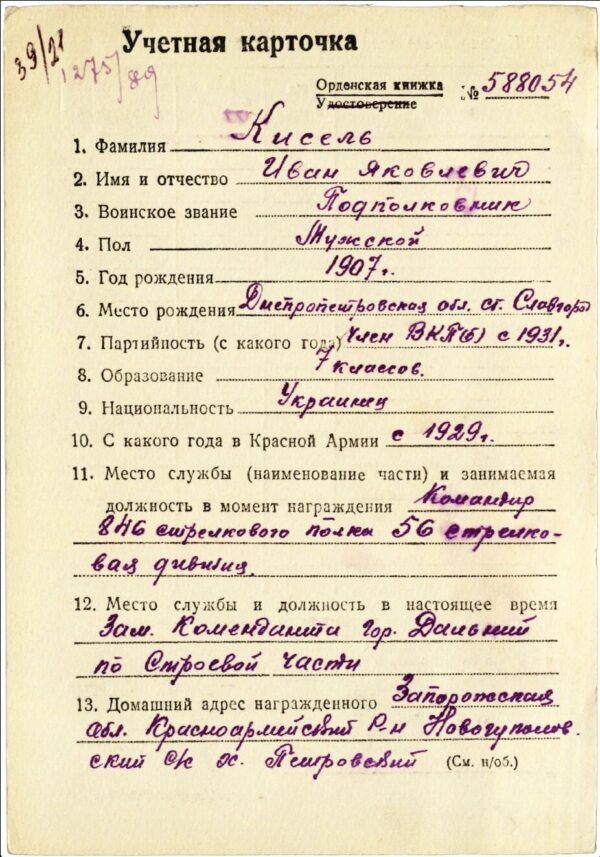 39/21
1275/89
Учетная карточка
Орденская книжка № 588054
Удостоверение
1. Фамилия Кисель
2. Имя и отчество Иван Яковлевич
3. Воинское звание Подполковник
4. Пол Мужской
5. Год рождения 1907 г.
6. Место рождения Днепропетровская обл. ст. Славгород
7. Партийность (с какого года) член ВКП(б) с 1931 г.
8. Образование 7 классов.
9. Национальность Украинец
10. С какого года в Красной Армии с 1929 г.
11. Место службы (наименование части) и занимаемая
должность в момент награждения Командир
846 стрелкового полка 56 стрелко-
вая дивизия.
12. Место службы и должность в настоящее время
Зам. Коменданта гор. Дальний
по Строевой части
13. Домашний адрес награжденного Запорожская
обл. Красноармейский р-н Новогуполов
ский с/с х. Петровский (См. н/об.)